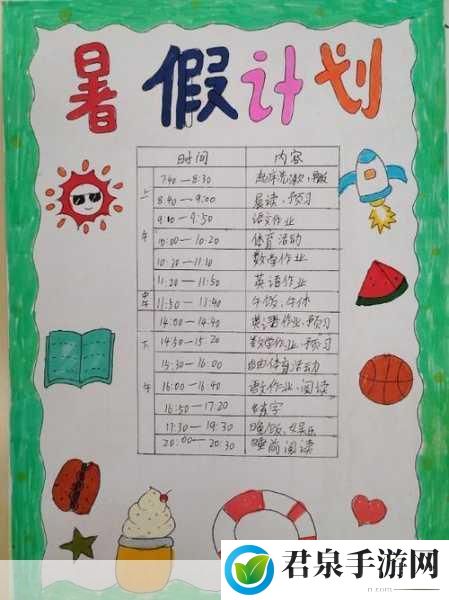 暑假计划
时间 内容
上午
7:40—8:30 起床洗漱、早饭
8:40—9:00 晨读、预习
9:10—9:50 语文作业
10:00—10:20 体育活动
10:30—11:10 数学作业
11:20—11:50 英语作业
中午
11:50—13:40 午饭、午休
下午
14:00—14:40 英语作业、预习
14:50—15:20 数学作业、预习
15:30—16:00 自由体育活动
16:00—16:40 语文作业、阅读
16:50—17:20 练字
17:30—19:30 晚饭、娱乐
20:00—20:30 睡前阅读
君泉手游网